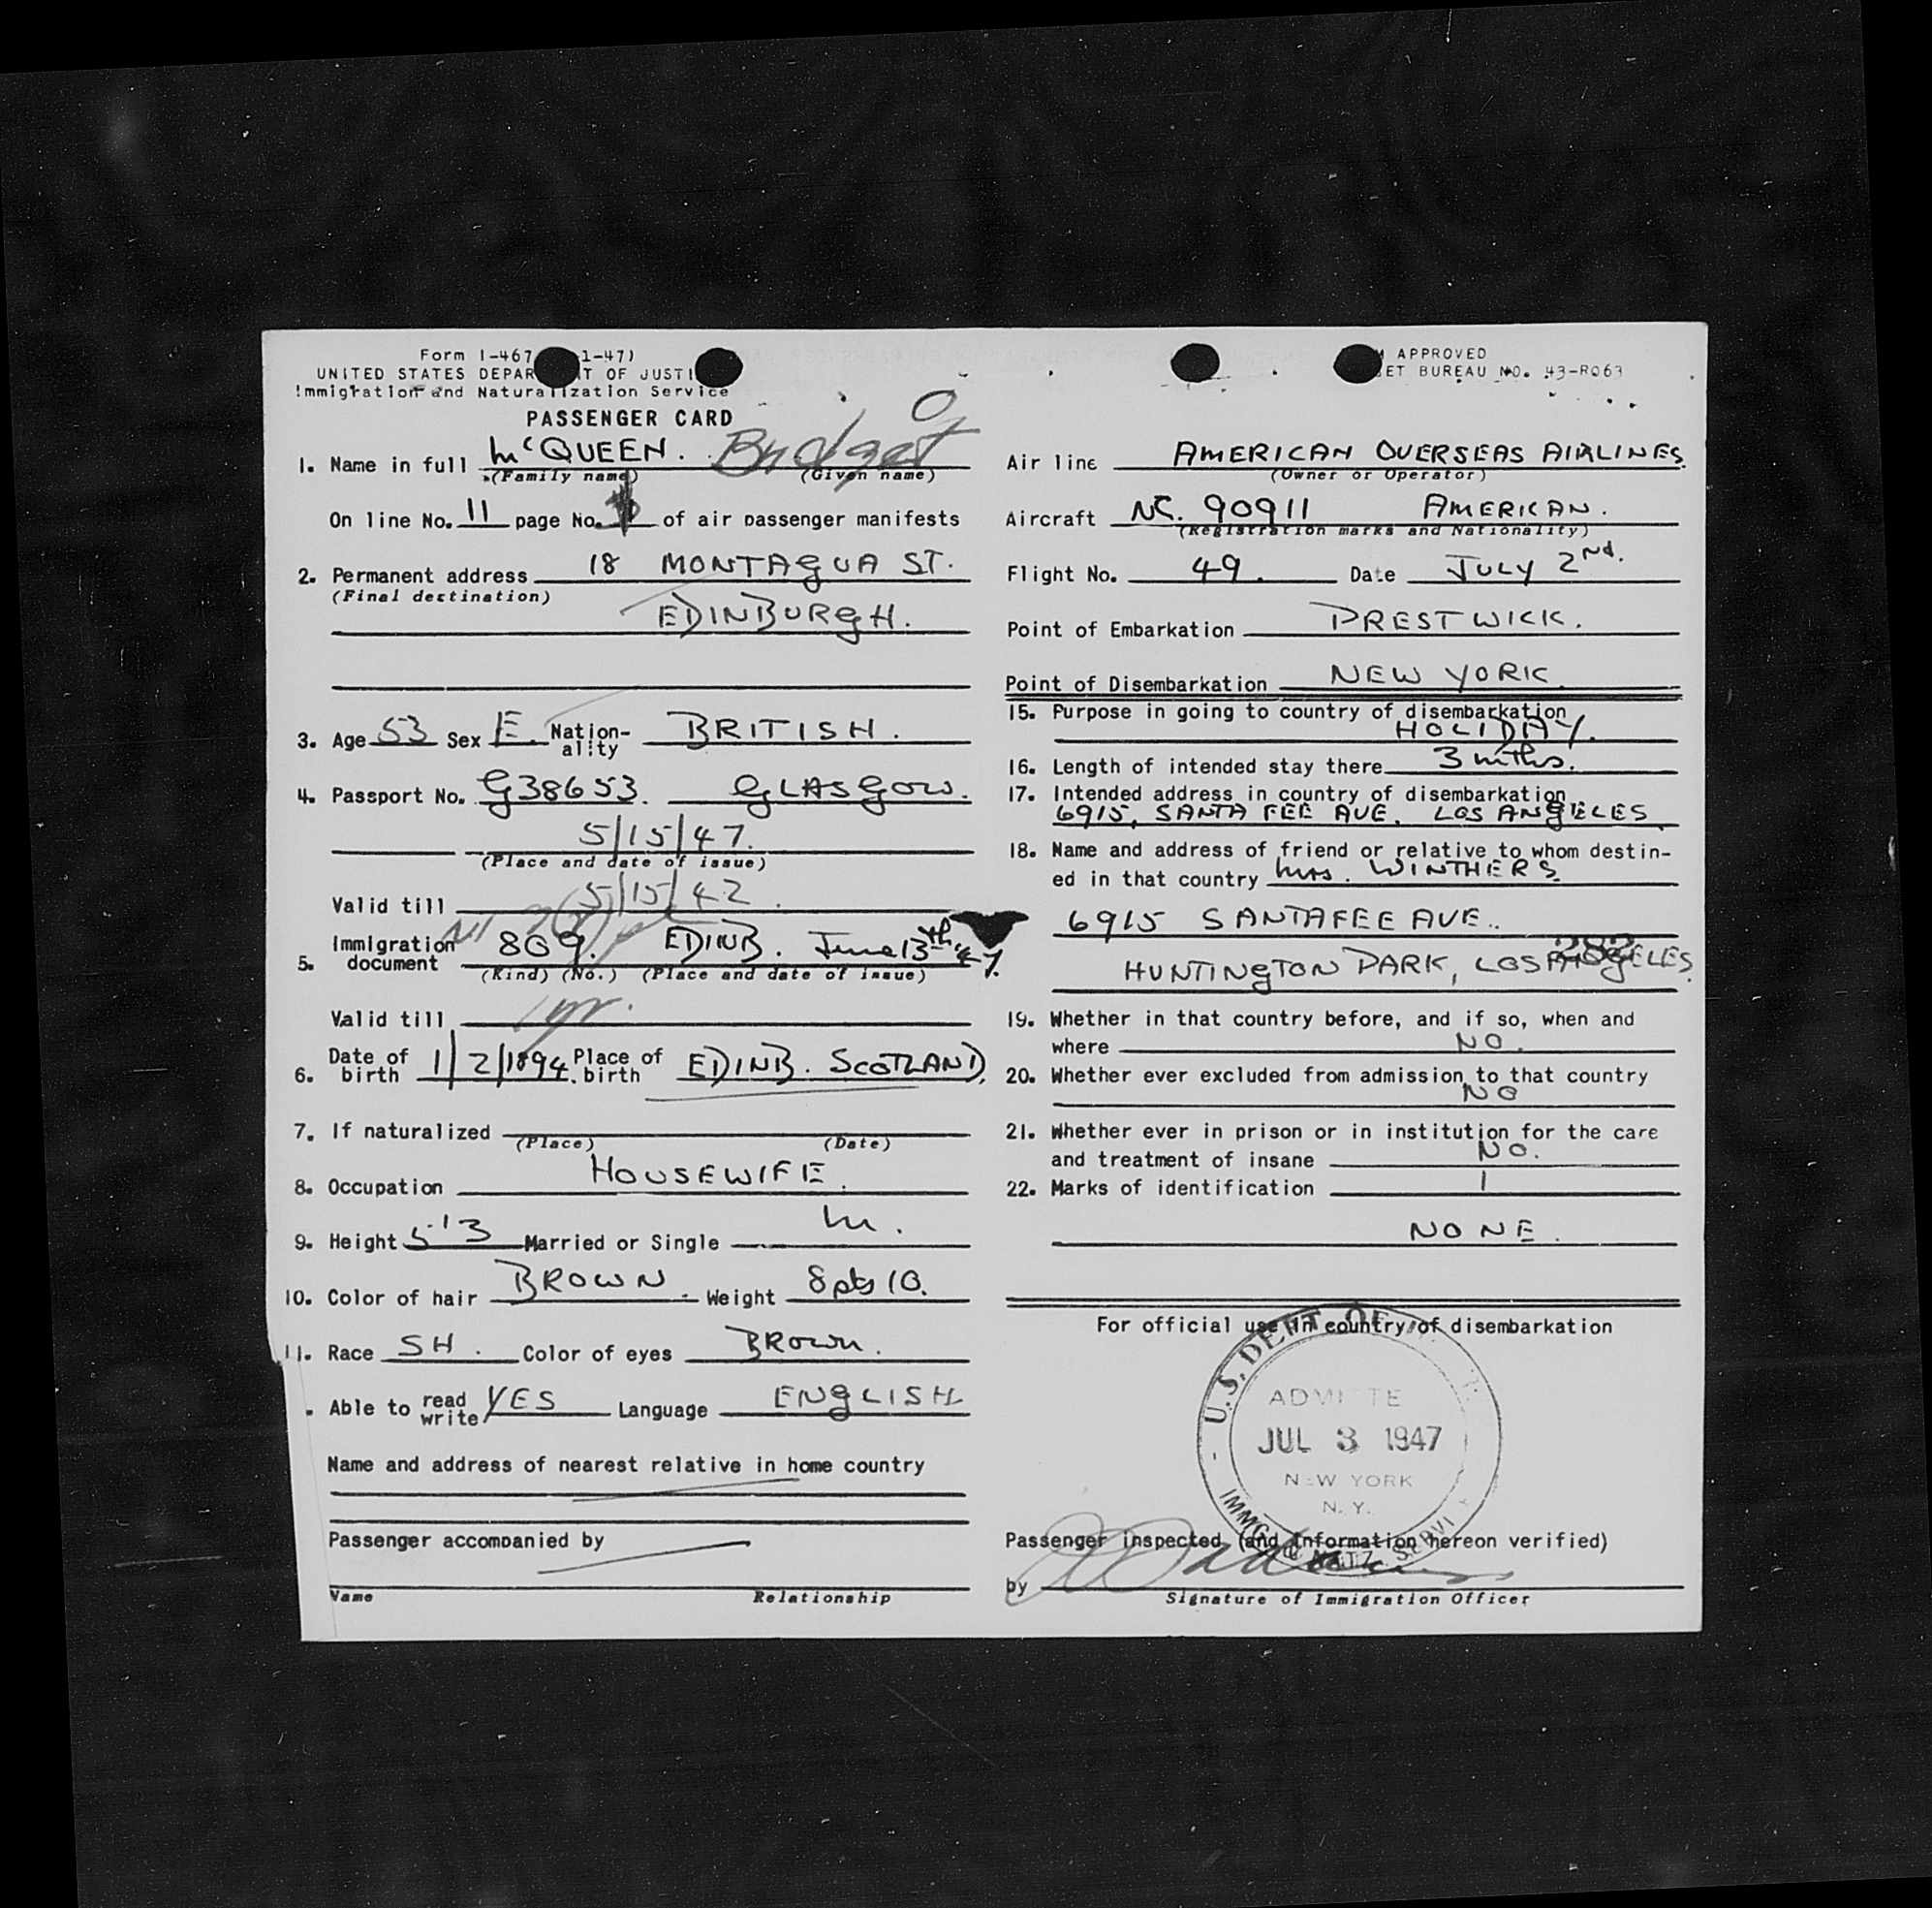 Form I-467 1-47)
UNITED STATES DEPAR T OF JUSTI
Immigration and Naturalization Service
PASSENGER CARD
1. Name in full McQUEEN. Bridget
(Family name) (Given name)
On line No. 11 page No. of air passenger manifests
2. Permanent address 18 MONTAGUA ST.
(Final destination)
EDINBURGH.
3. Age 53 Sex F. Nation-ality BRITISH.
4. Passport No. G38653. GLASGOW.
5/15/47.
(Place and date of issue)
Valid till 5/15/42.
5. Immigration document 809. EDINB. June 13th '47.
(Kind) (No.) (Place and date of issue)
Valid till 1 yr.
6. Date of birth 1/2/1894. Place of birth EDINB. SCOTLAND.
7. If naturalized
(Place) (Date)
8. Occupation HOUSEWIFE.
9. Height 5'3 Married or Single M.
10. Color of hair BROWN. Weight 8 10.
11. Race SH. Color of eyes BROWN.
. Able to read write YES Language ENGLISH
Name and address of nearest relative in home country
Passenger accompanied by
Name Relationship
M APPROVED
ET BUREAU NO. 43-R063
Air line AMERICAN OVERSEAS AIRLINES.
(Owner or Operator)
Aircraft NC. 90911 AMERICAN.
(Registration marks and Nationality)
Flight No. 49. Date JULY 2nd.
Point of Embarkation PRESTWICK.
Point of Disembarkation NEW YORK.
15. Purpose in going to country of disembarkation
HOLIDAY.
16. Length of intended stay there 3 mths.
17. Intended address in country of disembarkation
6915, SANTA FEE AVE. LOS ANGELES.
18. Name and address of friend or relative to whom destin-
ed in that country Mrs. WINTHERS
6915 SANTAFEE AVE..
282
HUNTINGTON PARK, LOS ANGELES.
19. Whether in that country before, and if so, when and
where NO.
20. Whether ever excluded from admission to that country
NO
21. Whether ever in prison or in institution for the care
and treatment of insane NO.
22. Marks of identification
NONE.
For official use in country of disembarkation
U.S. DEPT. OF
ADMITTE
JUL 3 1947
NEW YORK
N.Y.
Passenger inspected (and Information hereon verified)
by
Signature of Immigration Officer